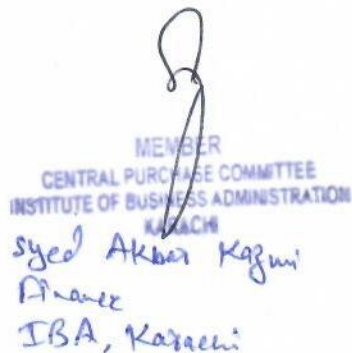 MEMBER
CENTRAL PURCHASE COMMITTEE
INSTITUTE OF BUSINESS ADMINISTRATION
KARACHI
Syed Akbar Kazmi
Finance
IBA, Karachi